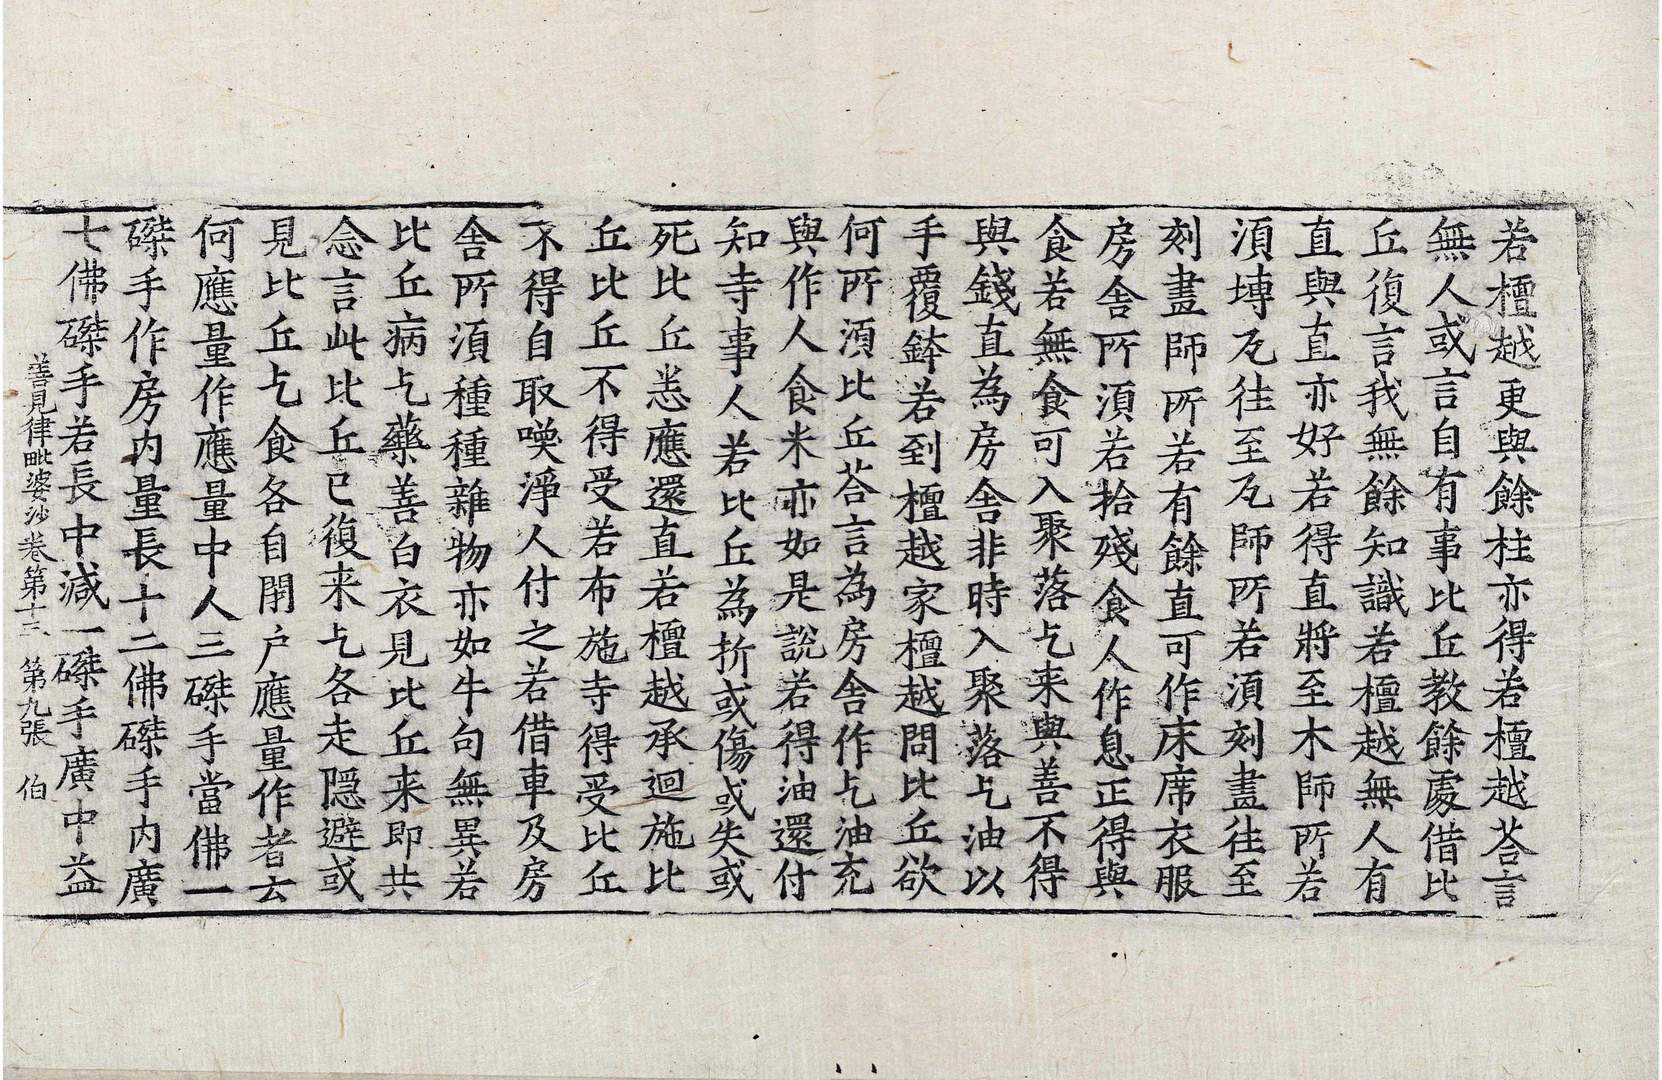 若檀越更與餘柱亦得若檀越荅言
無人或言自有事比丘教餘處借比
丘復言我無餘知識若檀越無人有
直與直亦好若得直將至木師所若
湏塼瓦往至瓦師所若湏刻畫往至
刻畫師所若有餘直可作床席衣服
房舎所湏若拾殘食人作息正得與
食若無食可入聚落乞来與善不得
與錢直為房舎非時入聚落乞油以
手覆鉢若到檀越家檀越問比丘欲
何所湏比丘荅言為房舎作乞油充
與作人食米亦如是說若得油還付
知寺事人若比丘為折或傷或失或
死比丘恙應還直若檀越承迴施比
丘比丘不得受若布施寺得受比丘
不得自取喚淨人付之若借車及房
舎所湏種種雜物亦如牛句無異若
比丘病乞藥善白衣見比丘来即共
念言此比丘已復来乞各走隱避或
見比丘乞食各自閇户應量作者云
何應量作應量中人三磔手當佛一
磔手作房内量長十二佛磔手内廣
七佛磔手若長中減一磔手廣中益
善見律毗婆沙卷第十三 第九張 伯